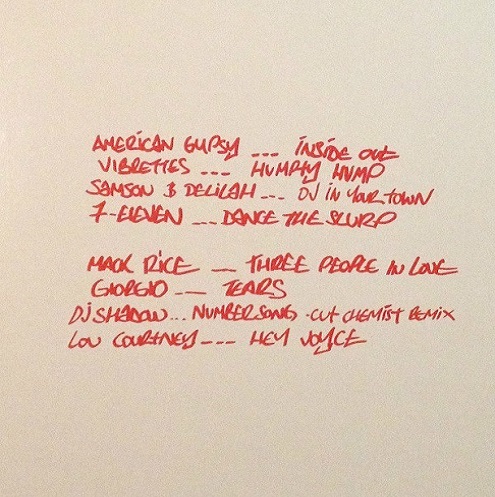 AMERICAN GYPSY --- INSIDE OUT
VIBRETTES --- HUMPTY HUMP
SAMSON & DELILAH --- DJ IN YOUR TOWN
7-ELEVEN --- DANCE THE SLURP
MACK RICE --- THREE PEOPLE IN LOVE
GIORGIO --- TEARS
DJ SHADOW... NUMBER SONG -CUT CHEMIST REMIX
LOU COURTNEY --- HEY JOYCE